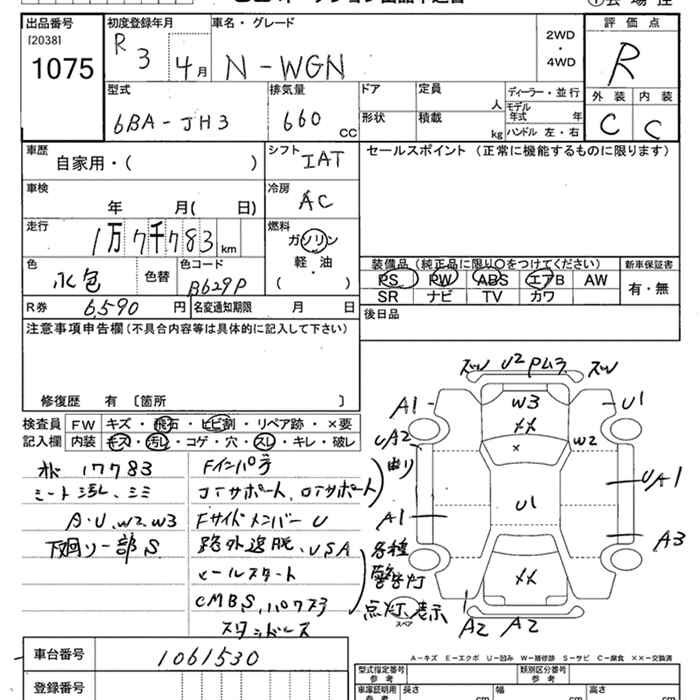 出品番号
[2038]
1075
初度登録年月
R 3 4 月
車名・グレード
N-WGN
2WD
・
4WD
評価点
R
外装 内装
C C
型式
6BA-JH3
排気量
660 CC
ドア
形状
定員
人
積載
kg
ディーラー・並行
モデル
年式 年
ハンドル 左・右
車歴
自家用・( )
シフト
IAT
セールスポイント (正常に機能するものに限ります)
車検
年 月( 日)
冷房
AC
走行
1万7千783 km
燃料
ガソリン
軽・油
( )
色
水色
色替
色コード
B629P
装備品 (純正品に限り○をつけてください)
PS PW ABS エアB AW
SR ナビ TV カワ
新車保証書
有・無
R券 6,590 円
名変通知期限 月 日
後日品
注意事項申告欄 (不具合内容等は具体的に記入して下さい)
修復歴 有 〔箇所 〕
検査員
記入欄
FW キズ・飛石・ヒビ割・リペア跡・×要
内装 キズ・汚レ・コゲ・穴・スレ・キレ・破レ
17783
シート汚レ、シミ
A・U、W2、W3
下廻り一部S
Fインパネ
Fサイドメンバー U
路外逸脱、USA
CMBS、パワステ
各種
警告灯
点灯、表示
スペア
U2
A1
W3
XX
U1
UA2
W2
×
曲り
U1
UA1
A1
A3
XX
A2 A2
A－キズ E－エクボ U－凹み W－補修跡 S－サビ C－腐食 XX－交換済
車台番号
1061530
登録番号
型式指定番号
参考
類別区分番号
参考
車庫証明用
参考
長さ cm
幅 cm
高さ cm